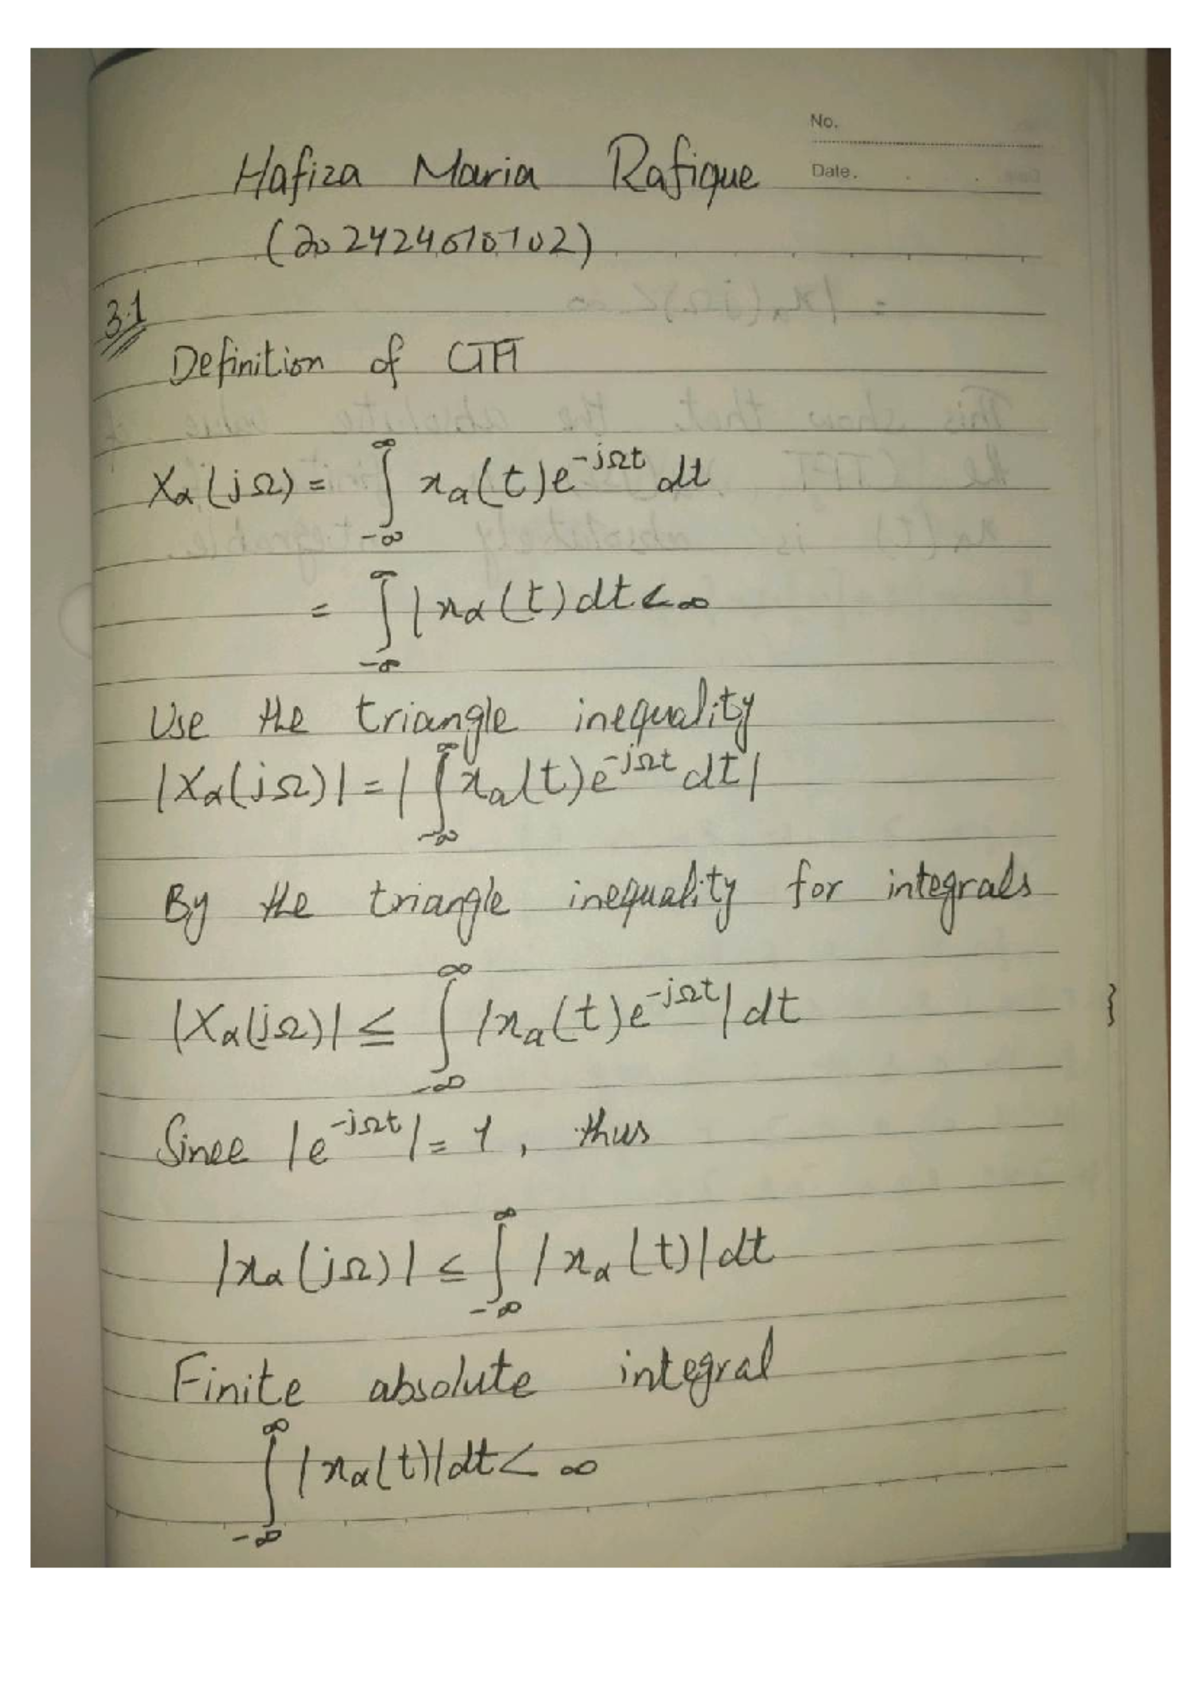 No.
Date.
Hafiza Maria Rafique
(202424010102)
3.1
Definition of CTFT
Xa(jΩ) = ∫_{-∞}^{∞} xa(t)e^{-jΩt} dt
= ∫_{-∞}^{∞} |xa(t)dt<∞
Use the triangle inequality
|Xa(jΩ)| = |∫_{-∞}^{∞} xa(t)e^{-jΩt} dt|
By the triangle inequality for integrals
|Xa(jΩ)| ≤ ∫_{-∞}^{∞} |xa(t)e^{-jΩt}| dt
Since |e^{-jΩt}| = 1, thus
|xa(jΩ)| ≤ ∫_{-∞}^{∞} |xa(t)|dt
Finite absolute integral
∫_{-∞}^{∞} |xa(t)|dt < ∞